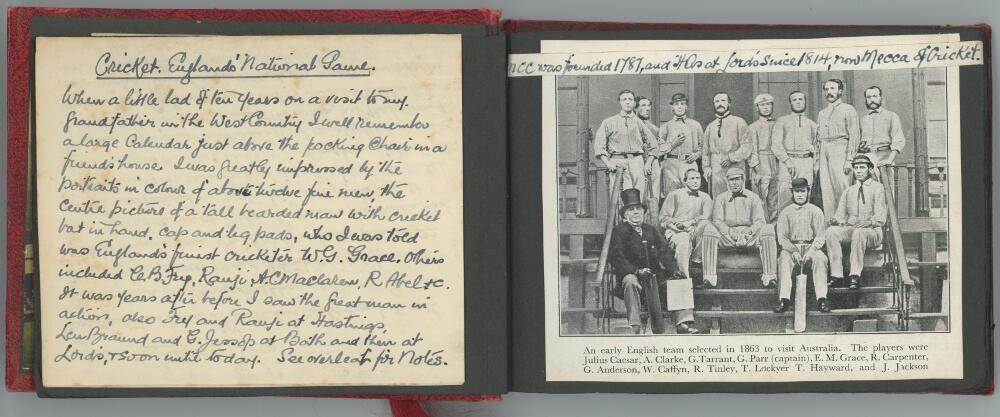 Cricket. England's National Game.
When a little lad of ten years on a visit to my
Grandfather in the West Country I well remember
a large Calendar just above the rocking chair in a
friends house. I was greatly impressed by the
portraits in colour of about twelve fine men, the
centre picture of a tall bearded man with cricket
bat in hand, cap and leg pads, who I was told
was England's finest cricketer W.G. Grace. Others
included C.B. Fry, Ranji, A.C. Maclaren, R. Abel &c.
It was years after before I saw the great man in
action, also Fry and Ranji at Hastings.
Len Braund and G. Jessop at Bath and then at
Lord's, & soon until today. See overleaf for Notes.
MCC was founded 1787, and HQs at Lord's since 1814, now Mecca of Cricket.
An early English team selected in 1863 to visit Australia. The players were
Julius Caesar, A. Clarke, G. Tarrant, G. Parr (captain), E. M. Grace, R. Carpenter,
G. Anderson, W. Caffyn, R. Tinley, T. Lockyer T. Hayward, and J. Jackson